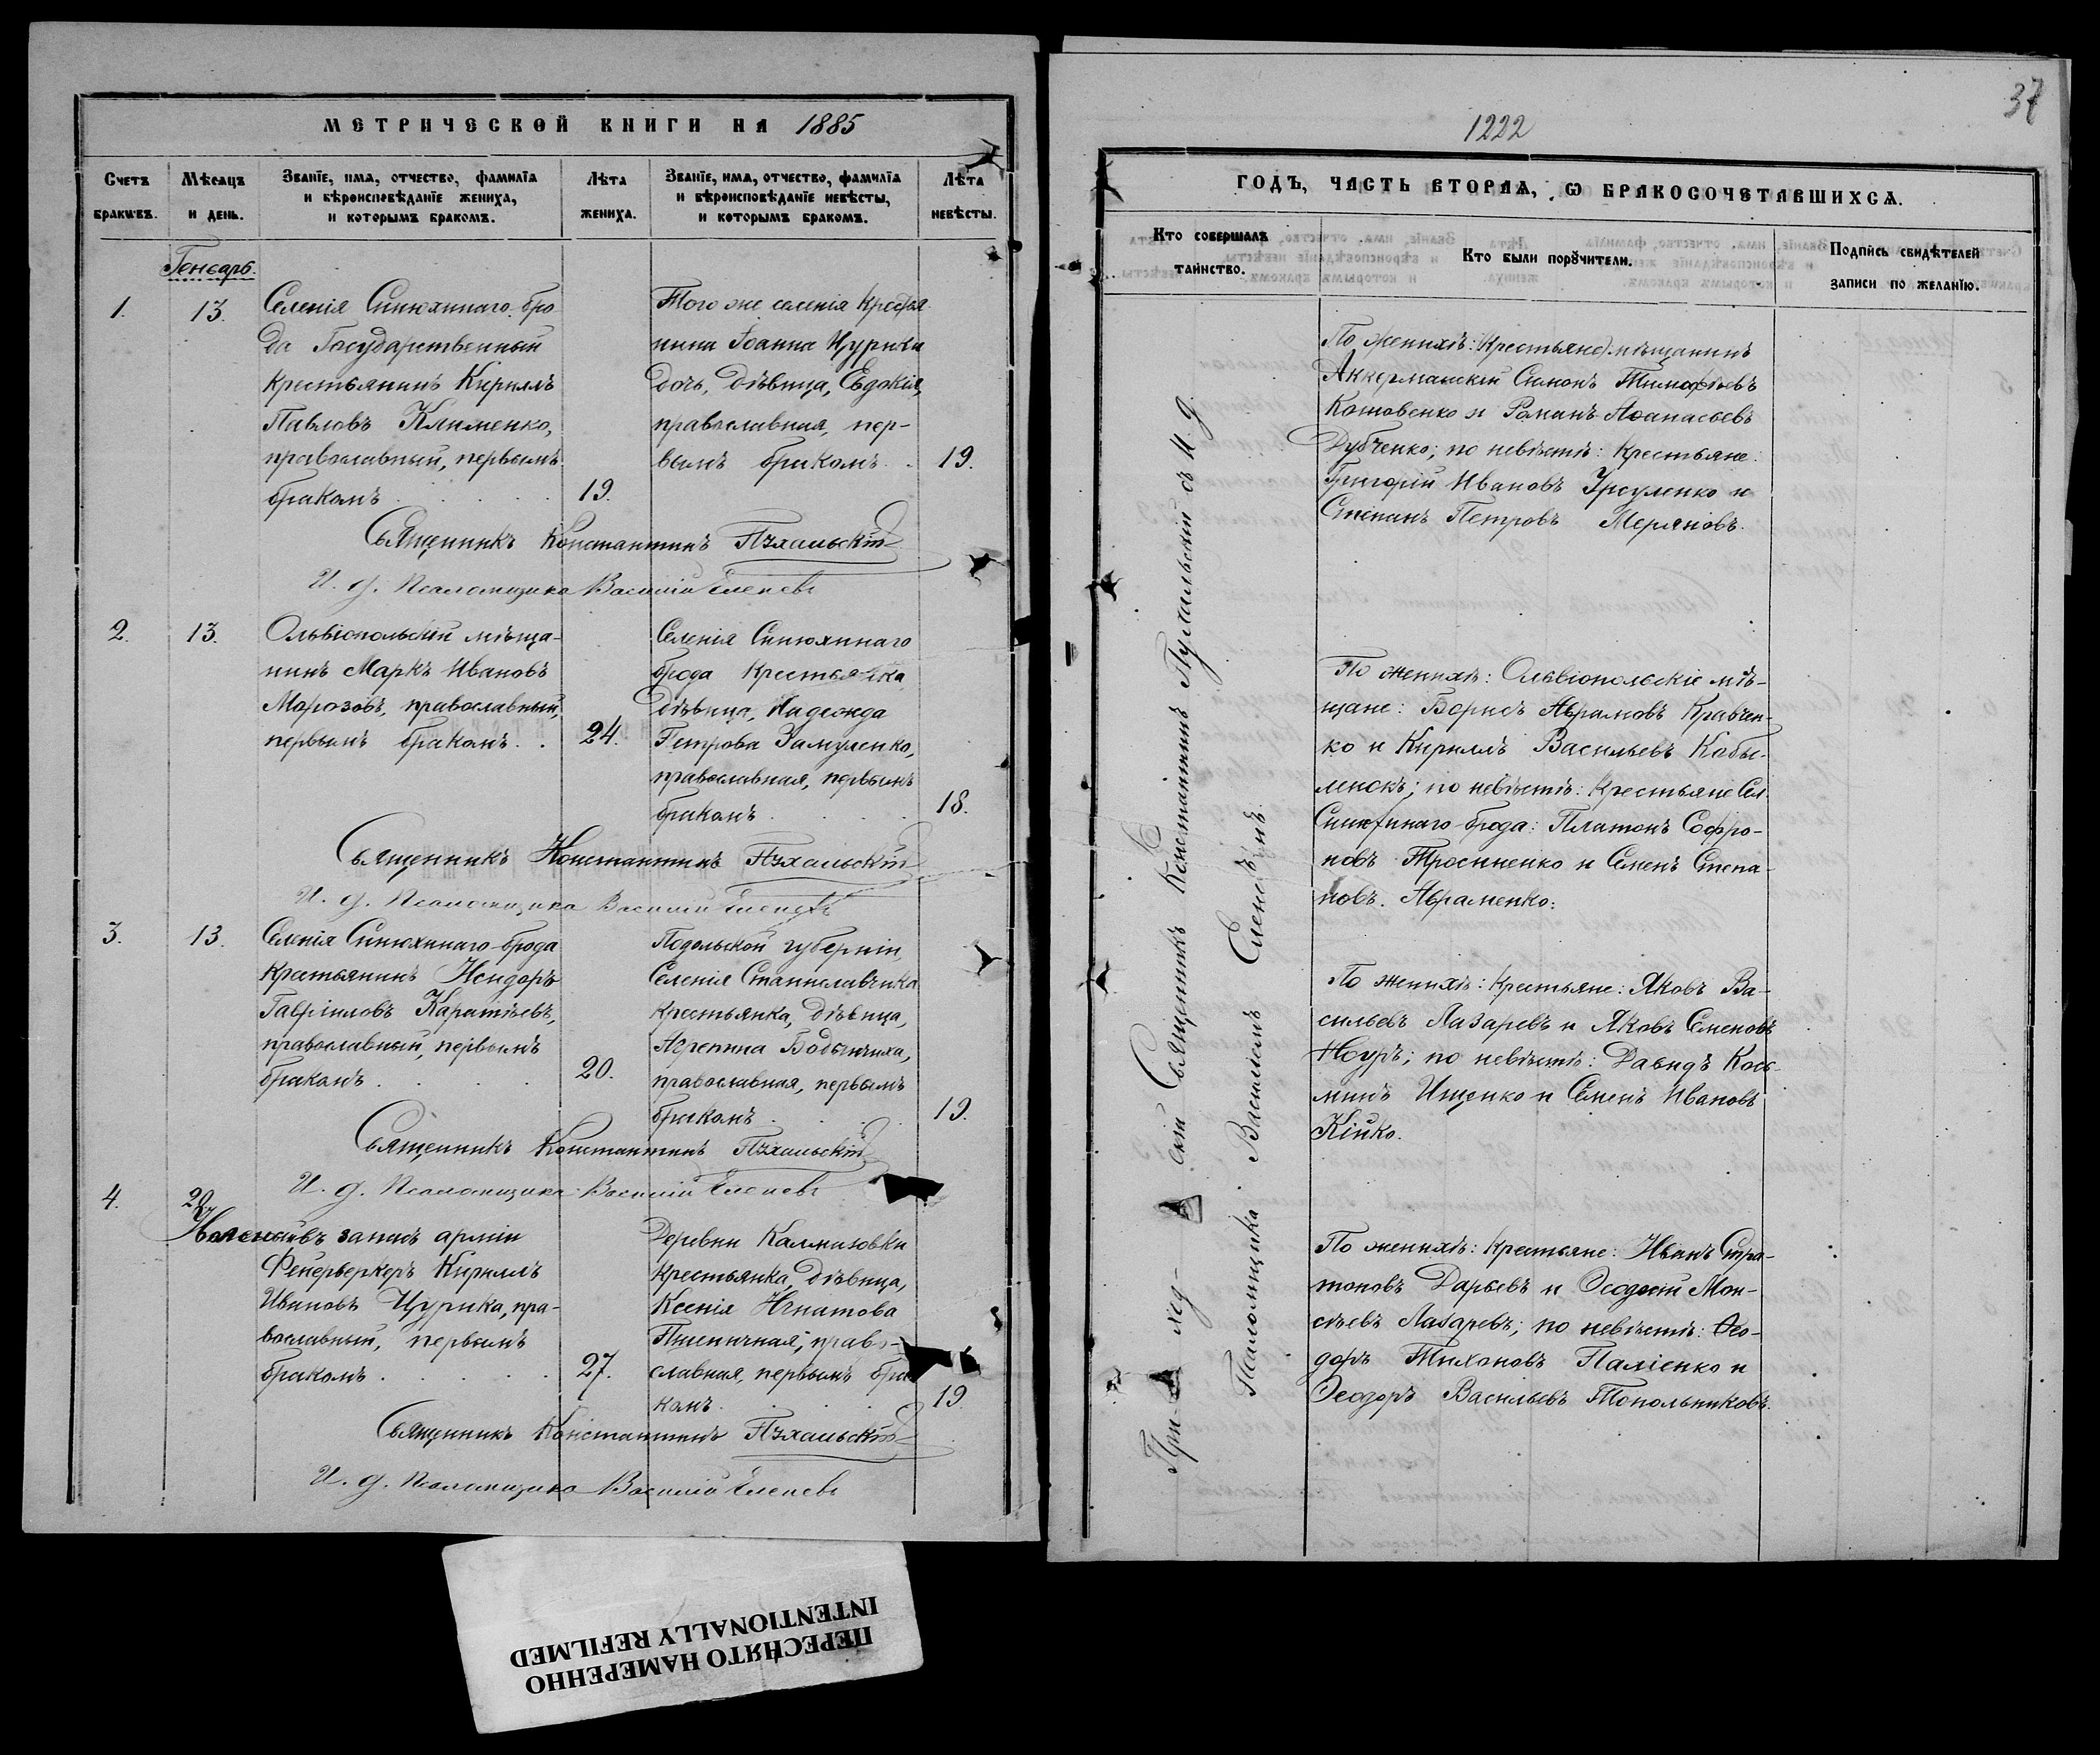 МЕТРИЧЕСКОЙ КНИГИ НА 1885
Счетъ браковъ.
Мѣсяцъ и день.
Званїе, имя, отчество, фамилїя и вѣроисповѣданїе жениха, и которымъ бракомъ.
Лѣта жениха.
Званїе, имя, отчество, фамилїя и вѣроисповѣданїе невѣсты, и которымъ бракомъ.
Лѣта невѣсты.
Генварь.
1.
13.
Селенія Синюхинаго бро
да Государственный
крестьянинъ Кириллъ
Павловъ Клименко,
православный, первымъ
бракомъ
19.
Того же селенія крестья
нина Іоанна Цурика
дочь, дѣвица, Евдокія,
православная, пер-
вымъ бракомъ
19.
Священникъ Константинъ
И. д. Псаломщика Василій Еленевъ
2.
13.
Ольвіопольскій мѣща-
нинъ Маркъ Ивановъ
Морозовъ, православный,
первымъ бракомъ
24.
Селенія Синюхинаго
брода крестьянка
дѣвица, Надежда
Петрова Замуленко,
православная, первымъ
бракомъ
18.
Священникъ Константинъ
И. д. Псаломщика Василій Еленевъ
3.
13.
Селенія Синюхинаго-брода
крестьянинъ Исидоръ
Гавріиловъ Каратѣевъ,
православный, первымъ
бракомъ
20.
Подольской губерніи,
Селенія Станиславчика
крестьянка, дѣвица,
Агрепина
православная, первымъ
бракомъ
19.
Священникъ Константинъ
И. д. Псаломщика Василій Еленевъ
4.
20.
въ запасъ арміи
Фейерверкеръ Кириллъ
Ивановъ Цурика, пра-
вославный, первымъ
бракомъ
27.
Деревни Калмазовки
крестьянка, дѣвица,
Ксенія Игнатова
Пшеничная, право-
славная, первымъ бра
комъ
19
Священникъ Константинъ
И. д. Псаломщика Василій Еленевъ
37
1222
ГОДЪ, ЧАСТЬ ВТОРАЯ, Ѡ БРАКОСОЧЕТАВШИХСЯ.
Кто совершалъ таинство.
Кто были порꙋчители.
Подпись свидѣтелей записи по желанїю.
Священникъ Константинъ
Псаломщика Василіемъ
По женихѣ: (Крестьяне) мѣщанинъ
Аккерманскій Симонъ Тимофѣевъ
и Романъ Аѳанасьевъ
Дубченко; по невѣстѣ: крестьяне:
Григорій Ивановъ Урсуленко и
Степанъ Петровъ Меряновъ.
По женихѣ: Ольвіопольскіе мѣ-
щане: Борисъ Абрамовъ Кравчен-
ко и Кириллъ Васильевъ Кобы-
; по невѣстѣ: крестьяне Сел.
брода: Платонъ Софро-
новъ Тросиненко и Семенъ Степа-
новъ Авраменко:
По женихѣ: крестьяне: Яковъ Ва-
сильевъ Лазаревъ и Яковъ Семеновъ
; по невѣстѣ: Давидъ Кось-
минъ Ищенко и Семенъ Ивановъ
Кійко.
По женихѣ: крестьяне: Иванъ Стра-
тоновъ Дарьевъ и Мои-
сѣевъ Лазаревъ; по невѣстѣ: Ѳео-
доръ Тихоновъ Паліенко и
Ѳеодоръ Васильевъ Топольниковъ.
ПЕРЕСНЯТО НАМЕРЕННО
INTENTIONALLY REFILMED